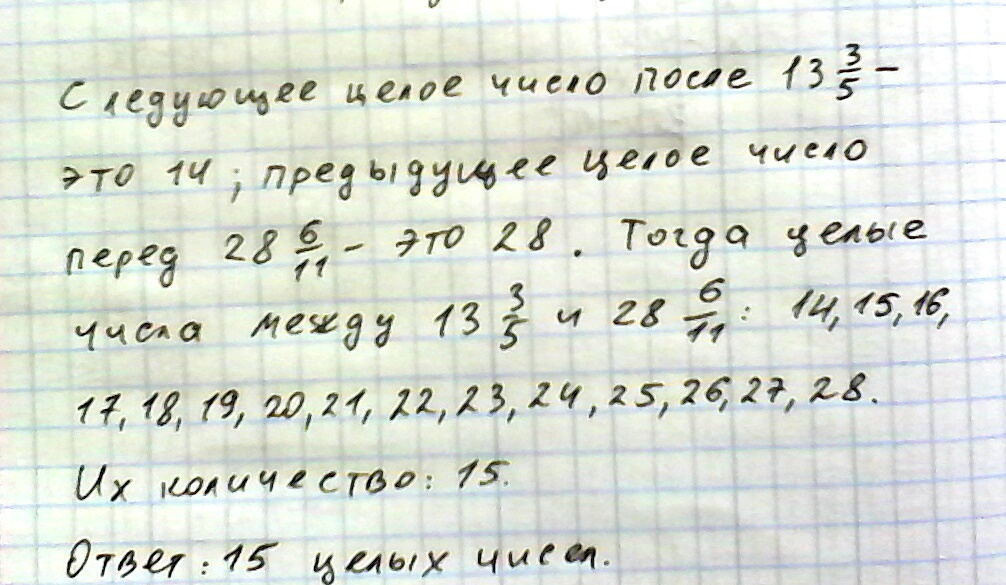 Следующее целое число после 13 3/5 –
это 14; предыдущее целое число
перед 28 6/11 – это 28. Тогда целые
числа между 13 3/5 и 28 6/11: 14, 15, 16,
17, 18, 19, 20, 21, 22, 23, 24, 25, 26, 27, 28.
Их количество: 15.
Ответ: 15 целых чисел.